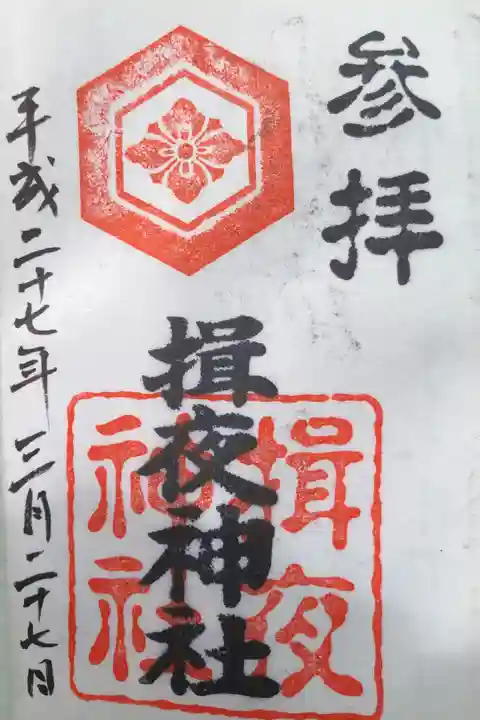 参拝
揖夜神社
揖夜神社
平成二十七年三月二十七日